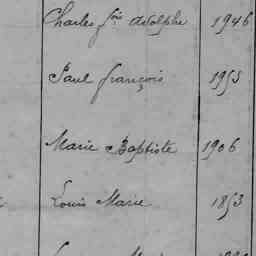 Charles fois adolphe 1946
Paul françois 1955
Marie Baptiste 1906
Louis Marie 1853